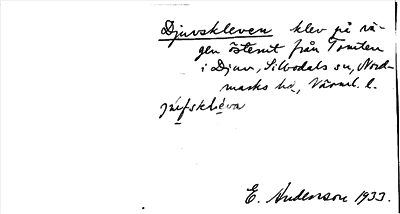 Djuvskleven klev på vä-
gen österut från Tomten
i Djuv, Silbodals sn, Nord-
marks hd, Värml. l.
júfsklèva
E. Anderson 1933.